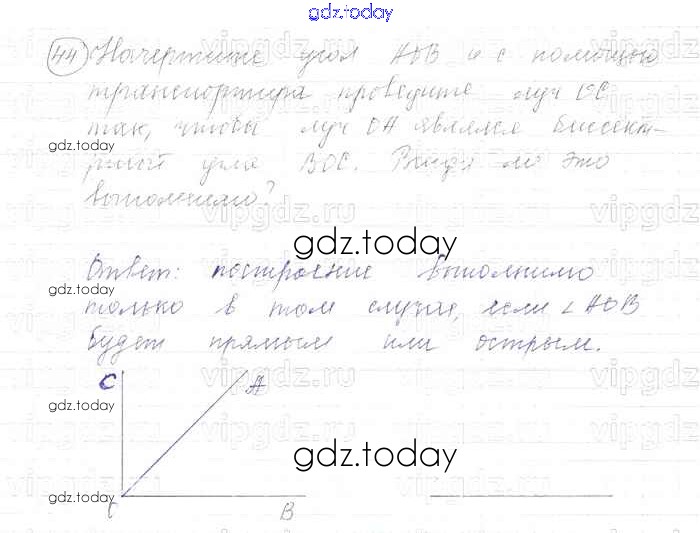 gdz.today
44 Начертите угол AOB и с помощью
транспортира проведите луч OC
так, чтобы луч OA являлся биссект-
gdz.today
рисой угла BOC. Всегда ли это
выполнимо?
gdz.today
Ответ: построение выполнимо
только в том случае, если ∠AOB
будет прямым или острым.
C A
gdz.today
gdz.today
gdz.today
B
vipgdz.ru